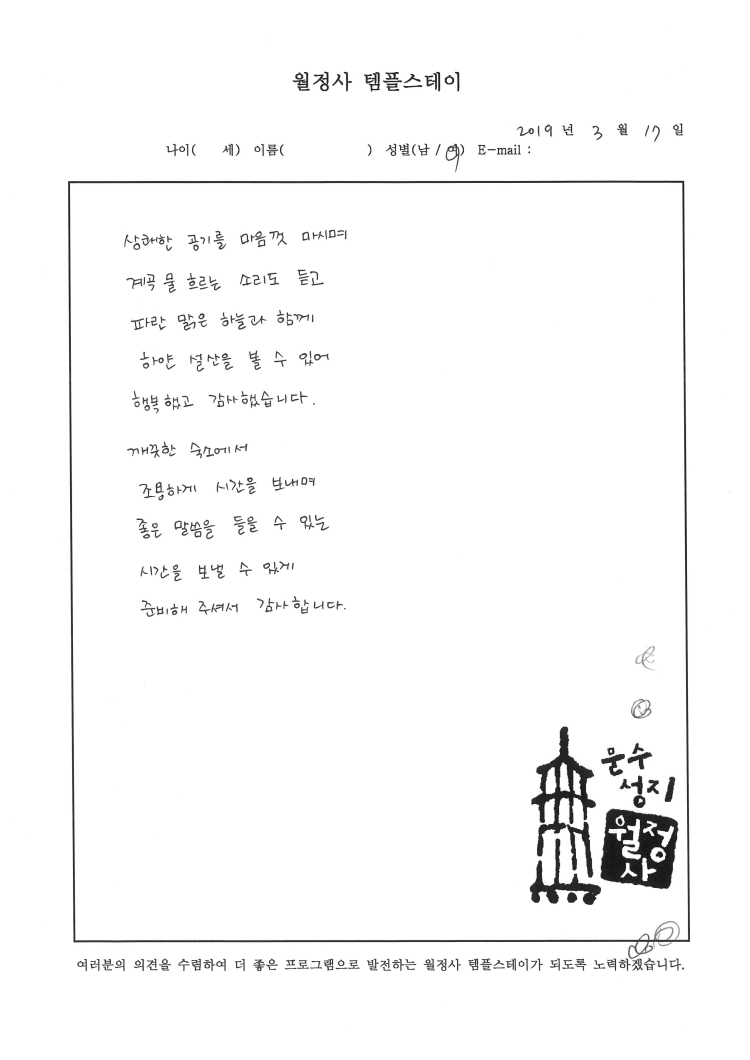 월정사 템플스테이
2019 년 3 월 17 일
나이( 세) 이름( ) 성별(남 / 여) E-mail :
상쾌한 공기를 마음껏 마시며
계곡 물 흐르는 소리도 듣고
파란 맑은 하늘과 함께
하얀 설산을 볼 수 있어
행복했고 감사했습니다.
깨끗한 숙소에서
조용하게 시간을 보내며
좋은 말씀을 들을 수 있는
시간을 보낼 수 있게
준비해 주셔서 감사합니다.
문수
성지
월정
사
여러분의 의견을 수렴하여 더 좋은 프로그램으로 발전하는 월정사 템플스테이가 되도록 노력하겠습니다.